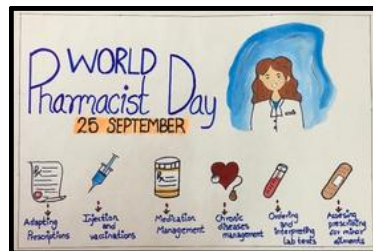 WORLD
Pharmacist Day
25 SEPTEMBER
Adapting
Prescriptions
Injection
and
vaccinations
Medication
Management
Chronic
diseases
management
Ordering
and
Interpreting
Lab tests
Assessing
prescribing
for minor
ailments